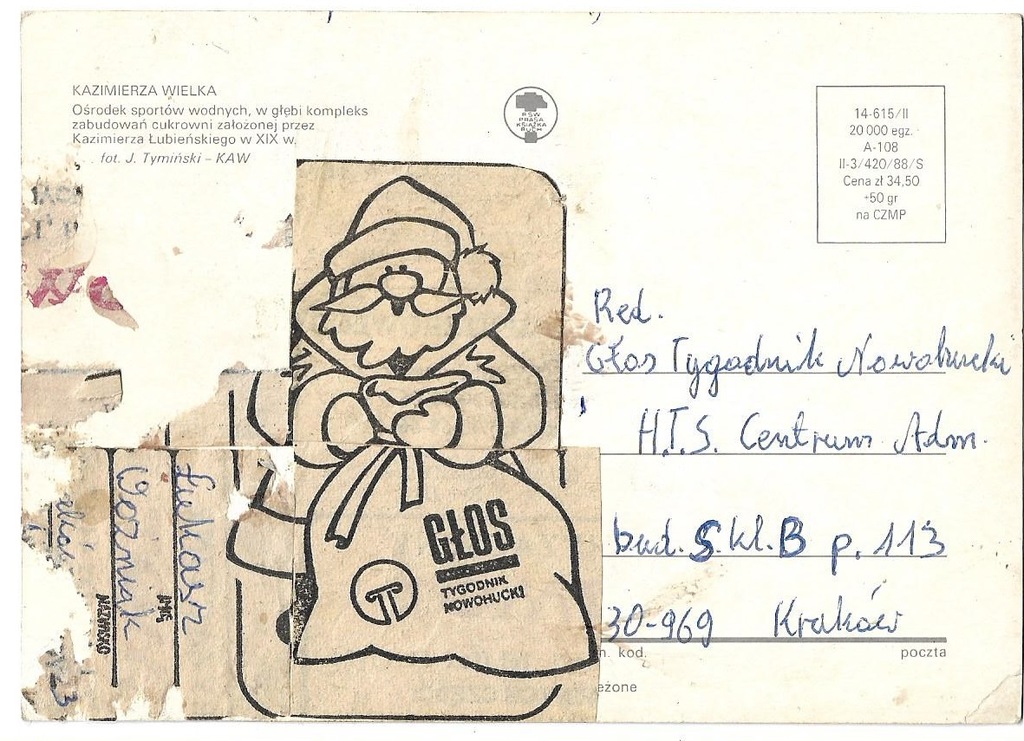 KAZIMIERZA WIELKA
Ośrodek sportów wodnych, w głębi kompleks
zabudowań cukrowni założonej przez
Kazimierza Łubieńskiego w XIX w.
fot. J. Tymiński – KAW
RSW
PRASA
KSIĄŻKA
RUCH
14-615/II
20 000 egz.
A-108
II-3/420/88/S
Cena zł 34,50
+50 gr
na CZMP
Red.
Głos Tygodnik Nowohucki
H.T.S. Centrum Adm.
bud. S kl. B p. 113
30-969 Kraków
n. kod. poczta
eżone
GŁOS
TYGODNIK
NOWOHUCKI
Łukasz
IMIĘ
Woźniak
NAZWISKO
23